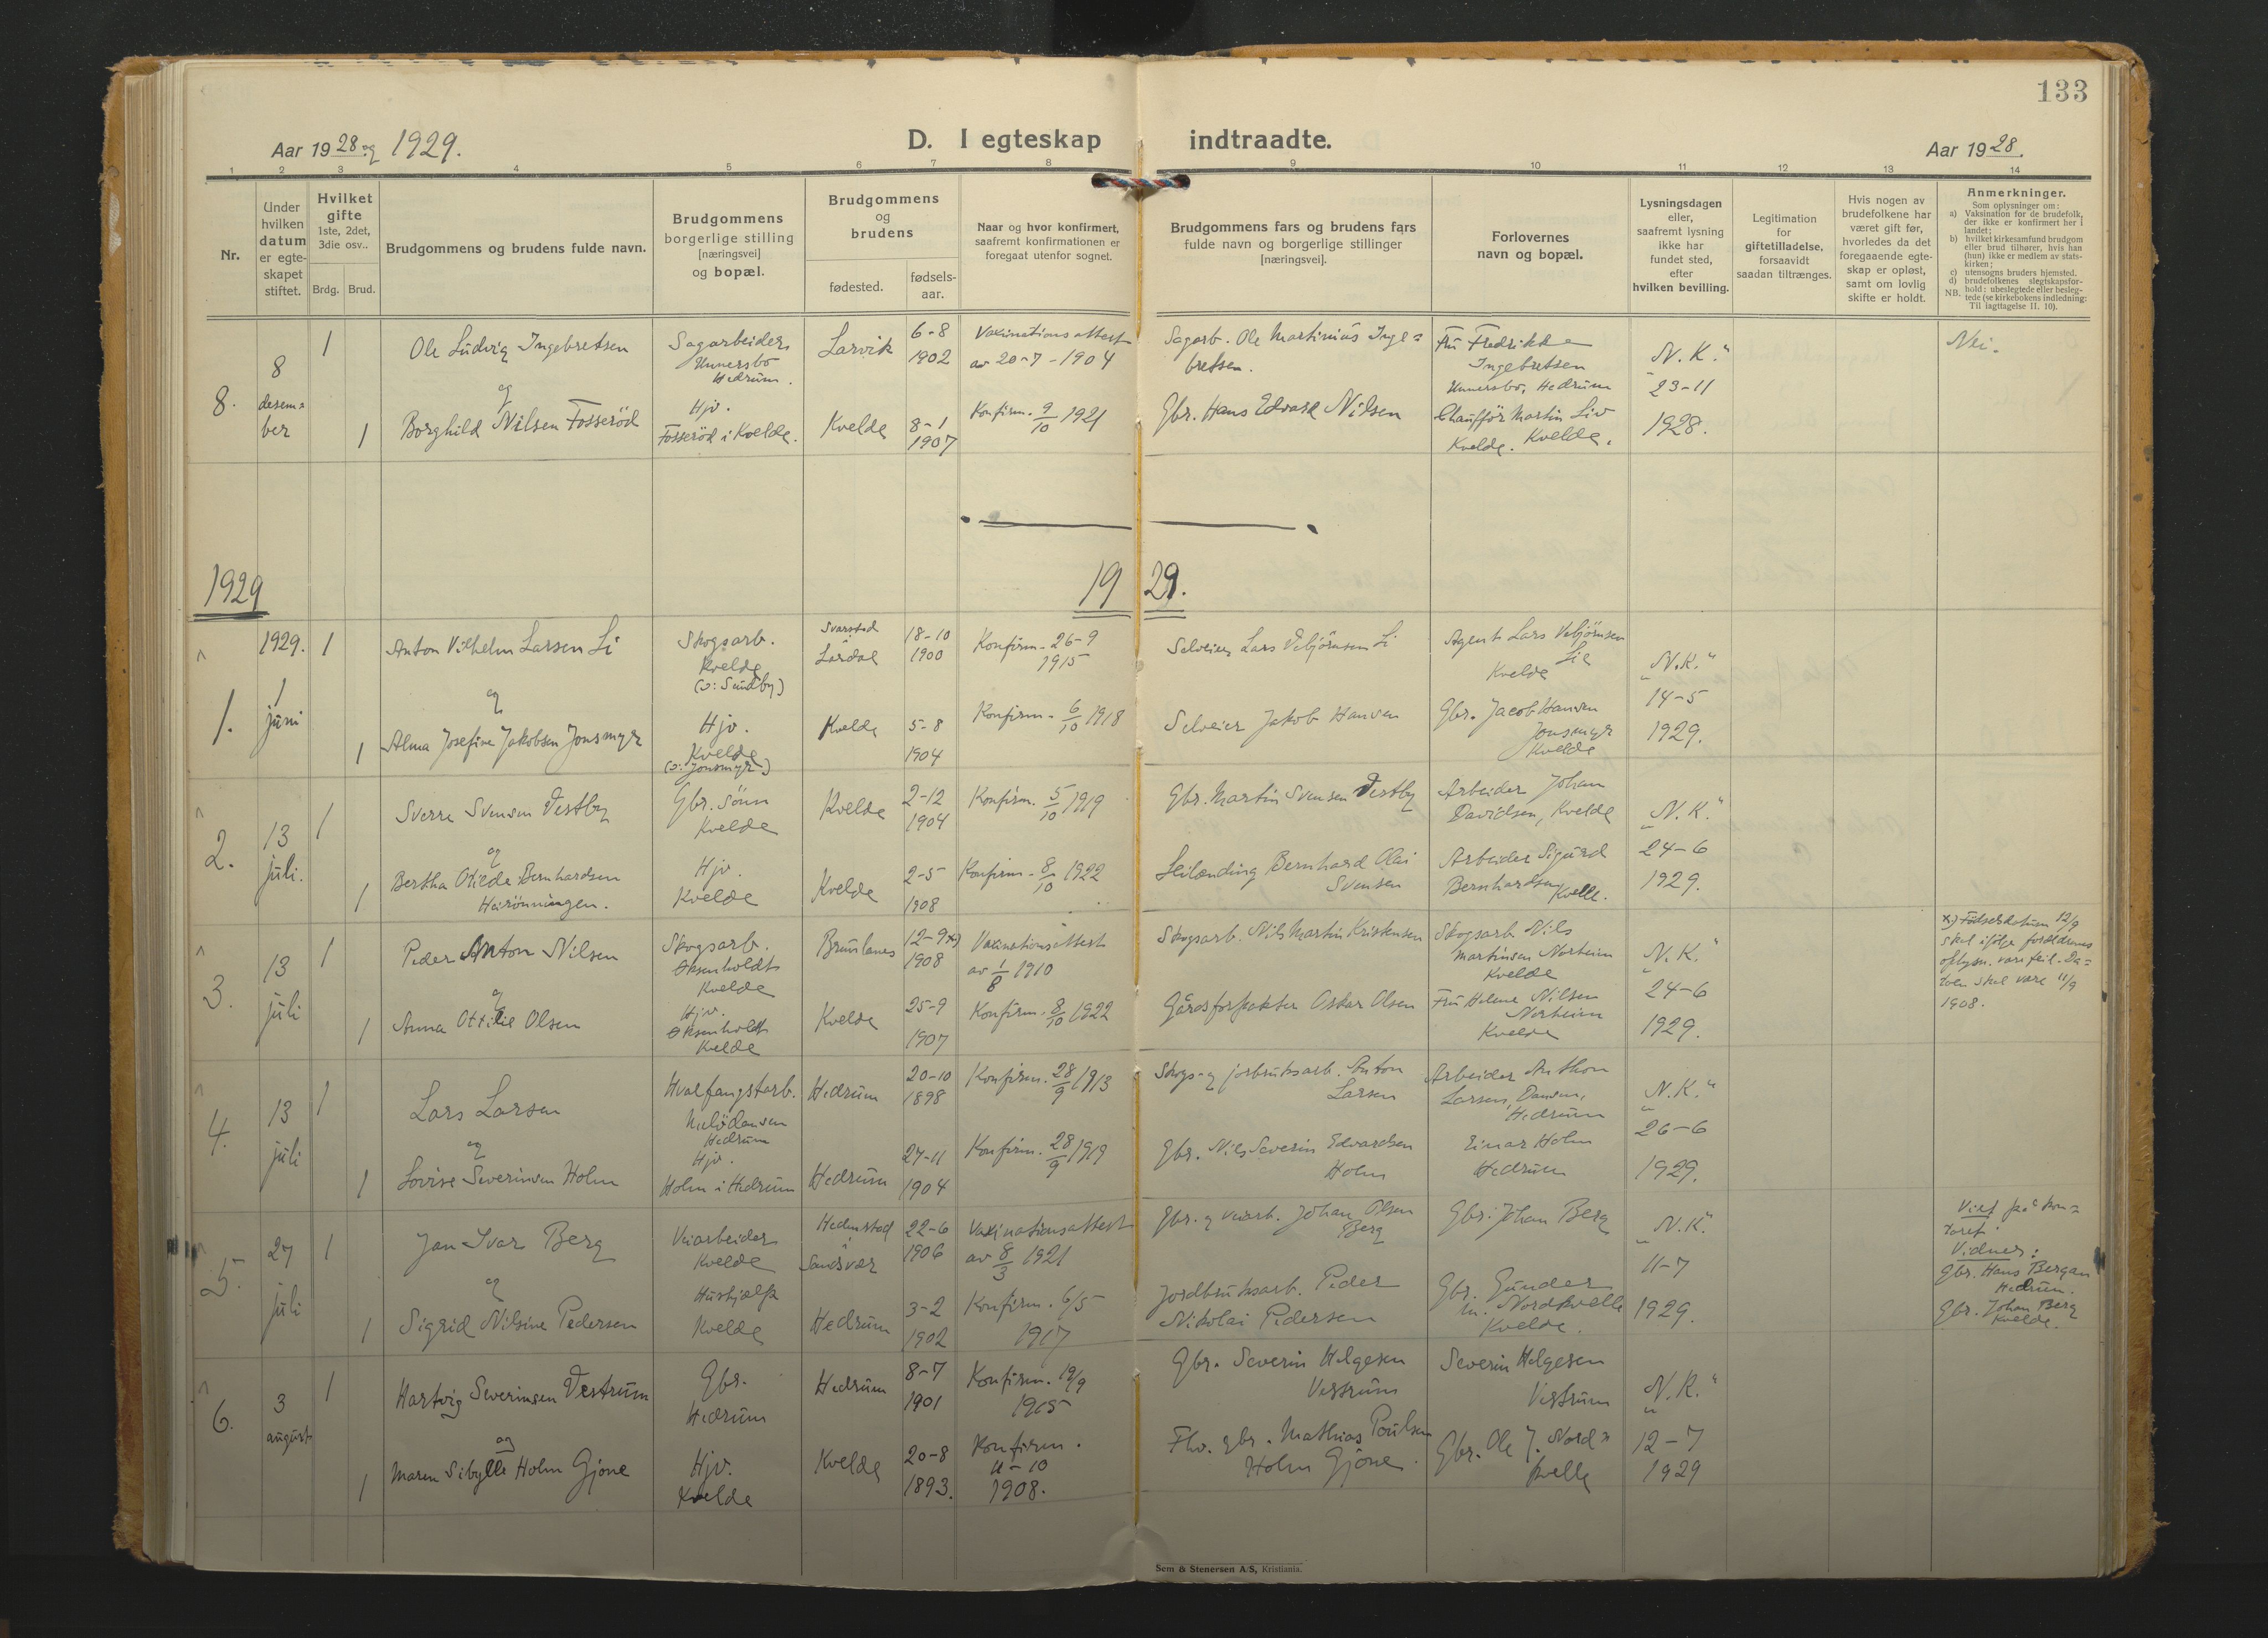 133
Aar 1928 og 1929.
D. I egteskap indtraadte.
Aar 1928.
1 2 3 4 5 6 7 8 9 10 11 12 13 14
Nr.
Under
hvilken
datum
er egte-
skapet
stiftet.
Hvilket
gifte
1ste, 2det,
3die osv..
Brdg. Brud.
Brudgommens og brudens fulde navn.
Brudgommens
borgerlige stilling
[næringsvei]
og bopæl.
Brudgommens
og
brudens
fødested.
fødsels-
aar.
Naar og hvor konfirmert,
saafremt konfirmationen er
foregaat utenfor sognet.
Brudgommens fars og brudens fars
fulde navn og borgerlige stillinger
[næringsvei].
Forlovernes
navn og bopæl.
Lysningsdagen
eller,
saafremt lysning
ikke har
fundet sted,
efter
hvilken bevilling.
Legitimation
for
giftetilladelse,
forsaavidt
saadan tiltrænges.
Hvis nogen av
brudefolkene har
været gift før,
hvorledes da det
foregaaende egte-
skap er opløst,
samt om lovlig
skifte er holdt.
Anmerkninger.
Som oplysninger om:
a) Vaksination for de brudefolk,
der ikke er konfirmert her i
landet;
b) hvilket kirkesamfund brudgom
eller brud tilhører, hvis han
(hun) ikke er medlem av stats-
kirken;
c) utensogns bruders hjemsted.
d) brudefolkenes slegtskapsfor-
hold: ubeslegtede eller besleg-
NB. tede (se kirkebokens indledning:
Til iagttagelse II. 10).
8.
8
desem=
ber
1
Ole Ludvig Ingebretsen
og
1
Borghild Nilsen Fosserød
Sagarbeider
Unnersbo
Hedrum.
Hjv.
Fosserød i Kvelde.
Larvik
6-8
1902
Kvelde
8-1
1907
Vaxinationsattest
av 20-7-1904
Konfirm. 9/10 1921
Sagarb. Ole Martinius Inge=
bretsen.
Gbr. Hans Edvard Nilsen
Fru Fredrikke
Ingebretsen
Unnersbo, Hedrum
Chaufför Martin Liv
Kvelde. Kvelde.
"N. K."
23-11
1928.
Nei.
1929
19 29.
1.
1929.
1
juni
1
Anton Vilhelm Larsen Li
og
1
Alma Josefine Jakobsen Jonsmyr
Skogsarb.
Kvelde
(ɔ: Sundby)
Hjv.
Kvelde
(ɔ: Jonsmyr)
Svarstad
i
Lardal
18-10
1900
Kvelde
5-8
1904
Konfirm. 26-9
1915
Konfirm. 6/10 1918
Selveier Lars Vebjörnsen Li
Selveier Jakob Hansen
Agent Lars Vebjörnsen
Lie
Kvelde
Gbr. Jacob Hansen
Jonsmyr
Kvelde
"N.K."
14-5
1929.
2.
13
juli.
1
Sverre Svensen Vestby
og
1
Bertha Otilde Bernhardsen
Heirönningen.
Gbr. sönn
Kvelde
Hjv.
Kvelde
Kvelde
2-12
1904
Kvelde
2-5
1908
Konfirm. 5/10 1919
Konfirm. 8/10 1922
Gbr. Martin Svensen Vestby
Leilænding Bernhard Olai
Svensen
Arbeider Johan
Davidsen, Kvelde
Arbeider Sigurd
Bernhardsen
Kvelle.
"N. K."
24-6
1929.
3.
13
juli
1
Peder Anton Nilsen
og
1
Anna Ottilie Olsen
Skogsarb.
Øksenholdt
Kvelde
Hjv.
Øksenholdt
Kvelde
Brunlanes
12-9 x)
1908
Kvelde
25-9
1907
Vaxinationsattest
av 1/8 1910
Konfirm. 8/10 1922
Skogsarb. Nils Martin Kristensen
Gårdsforpakter Oskar Olsen
Skogsarb. Nils
Martinsen Norheim
Kvelde
Fru Helene Nilsen
Norheim
Kvelde
"N. K."
24-6
1929.
x) Fødselsdatum 12/9
skal ifölge forældrenes
oplysn. være feil. Da=
toen skal være 11/9
1908.
4.
13
juli
1
Lars Larsen
og
1
Lovise Severinsen Holm
Hvalfangstarb.
Hedrum
Hjv.
Holm i Hedrum
Hedrum
20-10
1898
Hedrum
27-11
1904
Konfirm. 28/9 1913
Konfirm. 28/9 1919
Skogs- og jorbruksarb. Anton
Larsen
Gbr. Nils Severin Edvardsen
Holm
Arbeider Anthon
Larsen,
Hedrum
Einar Holm
Hedrum
"N.K."
26-6
1929.
5.
27
juli
1
Jan Ivar Berg
og
1
Sigrid Nilsine Pedersen
Veiarbeider
Kvelde
Hushjælp
Kvelde
Hedenstad
i
Sandsvær
22-6
1906
Hedrum
3-2
1902
Vaxinationsattest
av 8/3 1921
Konfirm. 6/5
1917
Gbr. og veiarb. Johan Olsen
Berg
Jordbruksarb. Peder
Nikolai Pedersen
Gbr. Johan Berg
Gbr. Gunder
m. Nordkvelle
Kvelde.
"N.K."
11-7
1929.
Viet på kon=
toret.
Vidner:
Gbr. Hans Bergan
Hedrum.
Gbr. Johan Berg
Kvelde.
6.
3
august
1
Hartvig Severinsen Vestrum
og
1
Maren Sibylle Holm Gjone
Gbr.
Hedrum
Hjv.
Kvelde
Hedrum
8-7
1901
Kvelde
20-8
1893.
Konfirm. 19/9
1915
Konfirm.
11-10
1908.
Gbr. Severin Helgesen
Vestrum
Fhv. gbr. Mathias Poulsen
Holm Gjone.
Severin Helgesen
Vestrum
Gbr. Ole J. Nord=
kvelle
"N. K."
12-7
1929
Sem & Stenersen A/S, Kristiania.